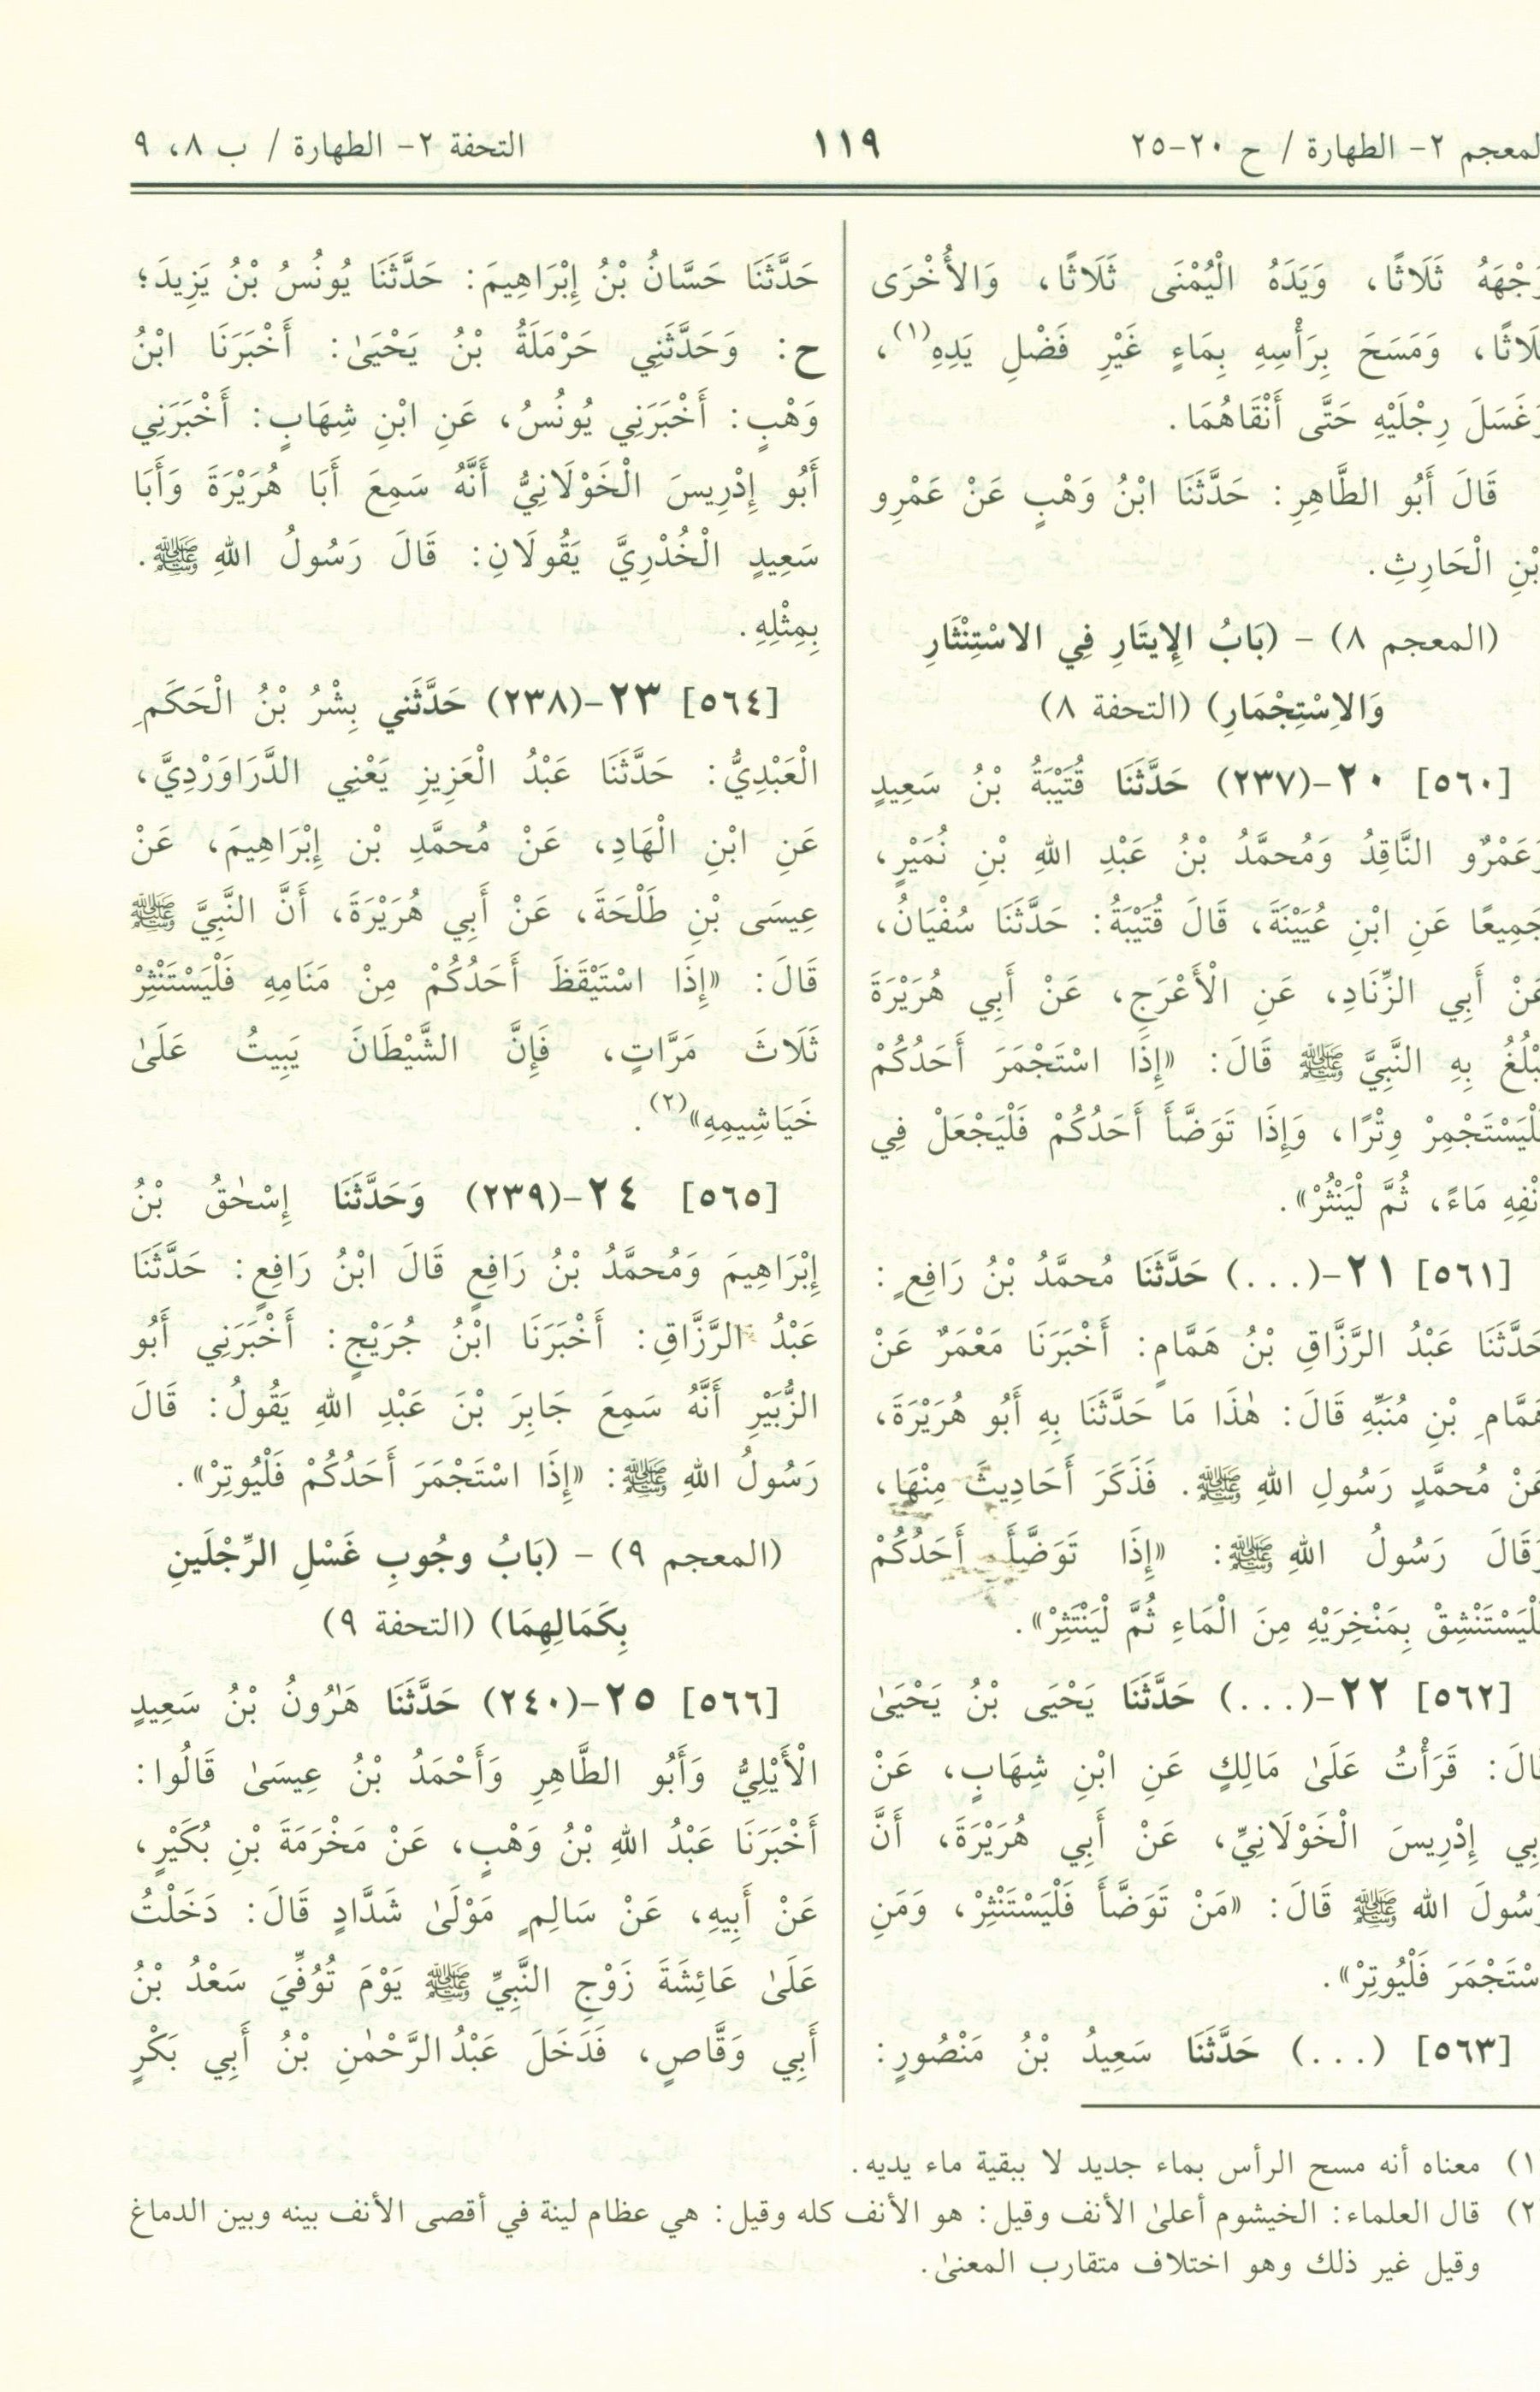 لمعجم ٢- الطهارة / ح ٢٠-٢٥
١١٩
التحفة ٢- الطهارة / ب ٨، ٩
وَجْهَهُ ثَلَاثًا، وَيَدَهُ الْيُمْنَى ثَلَاثًا، وَالأُخْرَى
ثَلَاثًا، وَمَسَحَ بِرَأْسِهِ بِمَاءٍ غَيْرِ فَضْلِ يَدِهِ(١)،
وَغَسَلَ رِجْلَيْهِ حَتَّى أَنْقَاهُمَا.
قَالَ أَبُو الطَّاهِرِ: حَدَّثَنَا ابْنُ وَهْبٍ عَنْ عَمْرِو
بْنِ الْحَارِثِ.
(المعجم ٨) - (بَابُ الإِيتَارِ فِي الاسْتِنْثَارِ
وَالاِسْتِجْمَارِ) (التحفة ٨)
[٥٦٠] ٢٠-(٢٣٧) حَدَّثَنَا قُتَيْبَةُ بْنُ سَعِيدٍ
وَعَمْرٌو النَّاقِدُ وَمُحمَّدُ بْنُ عَبْدِ اللهِ بْنِ نُمَيْرٍ،
جَمِيعًا عَنِ ابْنِ عُيَيْنَةَ، قَالَ قُتَيْبَةُ: حَدَّثَنَا سُفْيَانُ،
عَنْ أَبِي الزِّنَادِ، عَنِ الْأَعْرَجِ، عَنْ أَبِي هُرَيْرَةَ
يَبْلُغُ بِهِ النَّبِيَّ ﷺ قَالَ: «إِذَا اسْتَجْمَرَ أَحَدُكُمْ
فَلْيَسْتَجْمِرْ وِتْرًا، وَإِذَا تَوَضَّأَ أَحَدُكُمْ فَلْيَجْعَلْ فِي
أَنْفِهِ مَاءً، ثُمَّ لْيَنْثُرْ».
[٥٦١] ٢١-(...) حَدَّثَنَا مُحمَّدُ بْنُ رَافِعٍ:
حَدَّثَنَا عَبْدُ الرَّزَّاقِ بْنُ هَمَّامٍ: أَخْبَرَنَا مَعْمَرٌ عَنْ
هَمَّامِ بْنِ مُنَبِّهِ قَالَ: هٰذَا مَا حَدَّثَنَا بِهِ أَبُو هُرَيْرَةَ،
عَنْ مُحمَّدٍ رَسُولِ اللهِ ﷺ. فَذَكَرَ أَحَادِيثَ مِنْهَا،
وَقَالَ رَسُولُ اللهِ ﷺ: «إِذَا تَوَضَّأَ أَحَدُكُمْ
فَلْيَسْتَنْشِقْ بِمَنْخِرَيْهِ مِنَ الْمَاءِ ثُمَّ لْيَنْتَثِرْ».
[٥٦٢] ٢٢-(...) حَدَّثَنَا يَحْيَى بْنُ يَحْيَىٰ
قَالَ: قَرَأْتُ عَلَىٰ مَالِكٍ عَنِ ابْنِ شِهَابٍ، عَنْ
أَبِي إِدْرِيسَ الْخَوْلَانِيِّ، عَنْ أَبِي هُرَيْرَةَ، أَنَّ
رَسُولَ الله ﷺ قَالَ: «مَنْ تَوَضَّأَ فَلْيَسْتَنْثِرْ، وَمَنِ
اسْتَجْمَرَ فَلْيُوتِرْ».
[٥٦٣] (...) حَدَّثَنَا سَعِيدُ بْنُ مَنْصُورٍ:
حَدَّثَنَا حَسَّانُ بْنُ إِبْرَاهِيمَ: حَدَّثَنَا يُونُسُ بْنُ يَزِيدَ؛
ح: وَحَدَّثَنِي حَرْمَلَةُ بْنُ يَحْيَىٰ: أَخْبَرَنَا ابْنُ
وَهْبٍ: أَخْبَرَنِي يُونُسُ، عَنِ ابْنِ شِهَابٍ: أَخْبَرَنِي
أَبُو إِدْرِيسَ الْخَوْلَانِيُّ أَنَّهُ سَمِعَ أَبَا هُرَيْرَةَ وَأَبَا
سَعِيدٍ الْخُدْرِيَّ يَقُولَانِ: قَالَ رَسُولُ اللهِ ﷺ.
بِمِثْلِهِ.
[٥٦٤] ٢٣-(٢٣٨) حَدَّثَني بِشْرُ بْنُ الْحَكَمِ
الْعَبْدِيُّ: حَدَّثَنَا عَبْدُ الْعَزِيزِ يَعْنِي الدَّرَاوَرْدِيَّ،
عَنِ ابْنِ الْهَادِ، عَنْ مُحمَّدِ بْن إِبْرَاهِيمَ، عَنْ
عِيسَى بْنِ طَلْحَةَ، عَنْ أَبِي هُرَيْرَةَ، أَنَّ النَّبِيَّ ﷺ
قَالَ: «إِذَا اسْتَيْقَظَ أَحَدُكُمْ مِنْ مَنَامِهِ فَلْيَسْتَنْثِرْ
ثَلَاثَ مَرَّاتٍ، فَإِنَّ الشَّيْطَانَ يَبِيتُ عَلَىٰ
خَيَاشِيمِهِ»(٢).
[٥٦٥] ٢٤-(٢٣٩) وَحَدَّثَنَا إِسْحٰقُ بْنُ
إِبْرَاهِيمَ وَمُحمَّدُ بْنُ رَافِعٍ قَالَ ابْنُ رَافِعٍ: حَدَّثَنَا
عَبْدُ الرَّزَّاقِ: أَخْبَرَنَا ابْنُ جُرَيْجٍ: أَخْبَرَنِي أَبُو
الزُّبَيْرِ أَنَّهُ سَمِعَ جَابِرَ بْنَ عَبْدِ اللهِ يَقُولُ: قَالَ
رَسُولُ اللهِ ﷺ: «إِذَا اسْتَجْمَرَ أَحَدُكُمْ فَلْيُوتِرْ».
(المعجم ٩) - (بَابُ وجُوبِ غَسْلِ الرِّجْلَينِ
بِكَمَالِهِمَا) (التحفة ٩)
[٥٦٦] ٢٥-(٢٤٠) حَدَّثَنَا هَرُونُ بْنُ سَعِيدٍ
الْأَيْلِيُّ وَأَبُو الطَّاهِرِ وَأَحْمَدُ بْنُ عِيسَىٰ قَالُوا:
أَخْبَرَنَا عَبْدُ اللهِ بْنُ وَهْبٍ، عَنْ مَخْرَمَةَ بْنِ بُكَيْرٍ،
عَنْ أَبِيهِ، عَنْ سَالِمٍ مَوْلَىٰ شَدَّادٍ قَالَ: دَخَلْتُ
عَلَىٰ عَائِشَةَ زَوْجِ النَّبِيِّ ﷺ يَوْمَ تُوُفِّيَ سَعْدُ بْنُ
أَبِي وَقَّاصٍ، فَدَخَلَ عَبْدُ الرَّحْمٰنِ بْنُ أَبِي بَكْرٍ
١) معناه أنه مسح الرأس بماء جديد لا ببقية ماء يديه.
٢) قال العلماء: الخيشوم أعلىٰ الأنف وقيل: هو الأنف كله وقيل: هي عظام لينة في أقصى الأنف بينه وبين الدماغ
وقيل غير ذلك وهو اختلاف متقارب المعنىٰ.